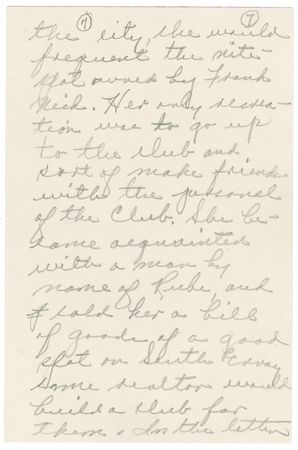 (7) 7
the city, she would
frequent the nite-
spot owned by Frank
Nick. Her only recrea-
tion was to go up
to the club and
sort of make friends
with the personel
of the Club. She be-
came acquainted
with a man by
name of Rube, and
sold her a bill
of goods of a good
spot on South Ervay
some realtor would
build a club for
them. In the letter